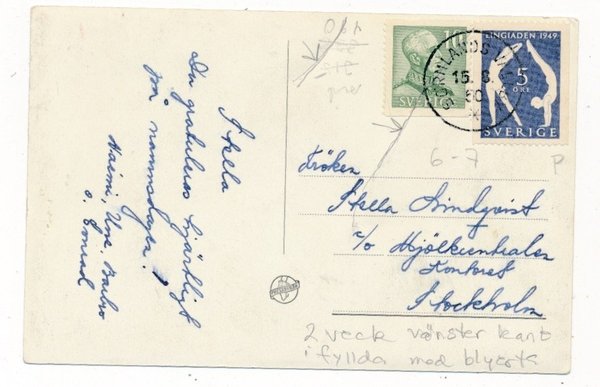 Stella
Du gratuleras hjärtligt
på namnsdagen!
Haimi, Una
o. Conrad
10
SVERIGE
LINGIADEN 1949
5
ÖRE
SVERIGE
15. 8.
50
6-7
P
Fröken
Stella Lindqvist
c/o Mjölkcentralen
Kontoret
Stockholm
2 veck vänster kant
ifyllda med blyerts